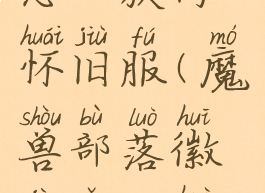 huái jiù fú mó
怀旧服(魔
shòu bù luò huī
兽部落徽